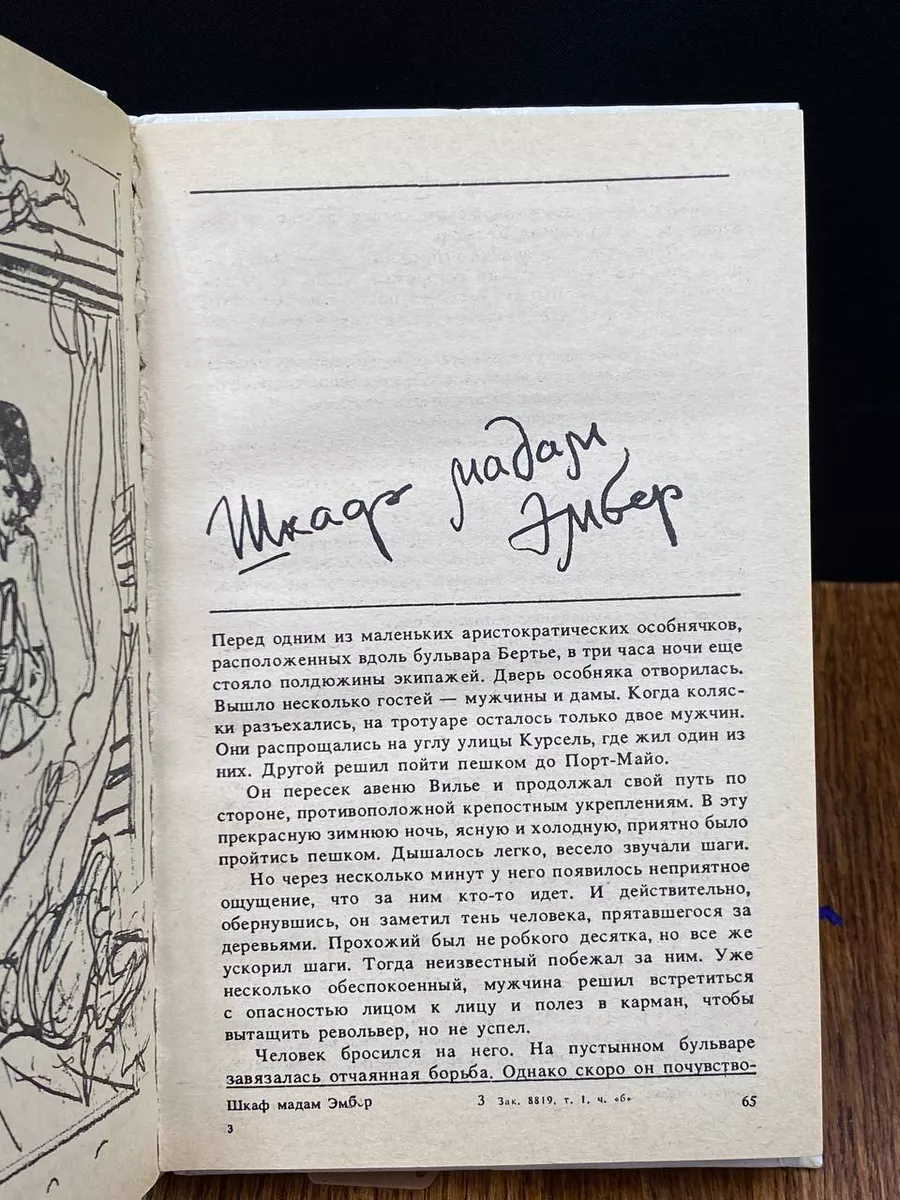 Шкаф мадам
Эмбер
Перед одним из маленьких аристократических особнячков,
расположенных вдоль бульвара Бертье, в три часа ночи еще
стояло полдюжины экипажей. Дверь особняка отворилась.
Вышло несколько гостей — мужчины и дамы. Когда коляс-
ки разъехались, на тротуаре осталось только двое мужчин.
Они распрощались на углу улицы Курсель, где жил один из
них. Другой решил пойти пешком до Порт-Майо.
Он пересек авеню Вилье и продолжал свой путь по
стороне, противоположной крепостным укреплениям. В эту
прекрасную зимнюю ночь, ясную и холодную, приятно было
пройтись пешком. Дышалось легко, весело звучали шаги.
Но через несколько минут у него появилось неприятное
ощущение, что за ним кто-то идет. И действительно,
обернувшись, он заметил тень человека, прятавшегося за
деревьями. Прохожий был не робкого десятка, но все же
ускорил шаги. Тогда неизвестный побежал за ним. Уже
несколько обеспокоенный, мужчина решил встретиться
с опасностью лицом к лицу и полез в карман, чтобы
вытащить револьвер, но не успел.
Человек бросился на него. На пустынном бульваре
завязалась отчаянная борьба. Однако скоро он почувство-
Шкаф мадам Эмбер 3 Зак. 8819, т. 1, ч. «б» 65
3